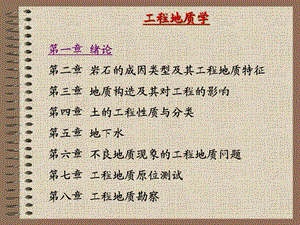 工程地质学
第一章 绪论
第二章 岩石的成因类型及其工程地质特征
第三章 地质构造及其对工程的影响
第四章 土的工程性质与分类
第五章 地下水
第六章 不良地质现象的工程地质问题
第七章 工程地质原位测试
第八章 工程地质勘察